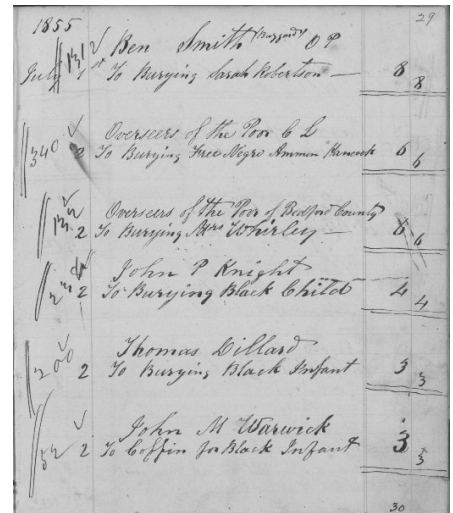 1855 29
Ben Smith (Buzzard) O P
July 1st To Burying Sarah Robertson — 8 8
Overseers of the Poor C L
340 2 To Burying Free Negro Ammon Hancock 6 6
Overseers of the Poor of Bedford County
2 To Burying Mrs Whirley — 6 6
John P Knight
2 To Burying Black Child 4 4
Thomas Dillard
200 2 To Burying Black Infant 3 3
John M Warwick
52 2 To Coffin for Black Infant 3 3
30